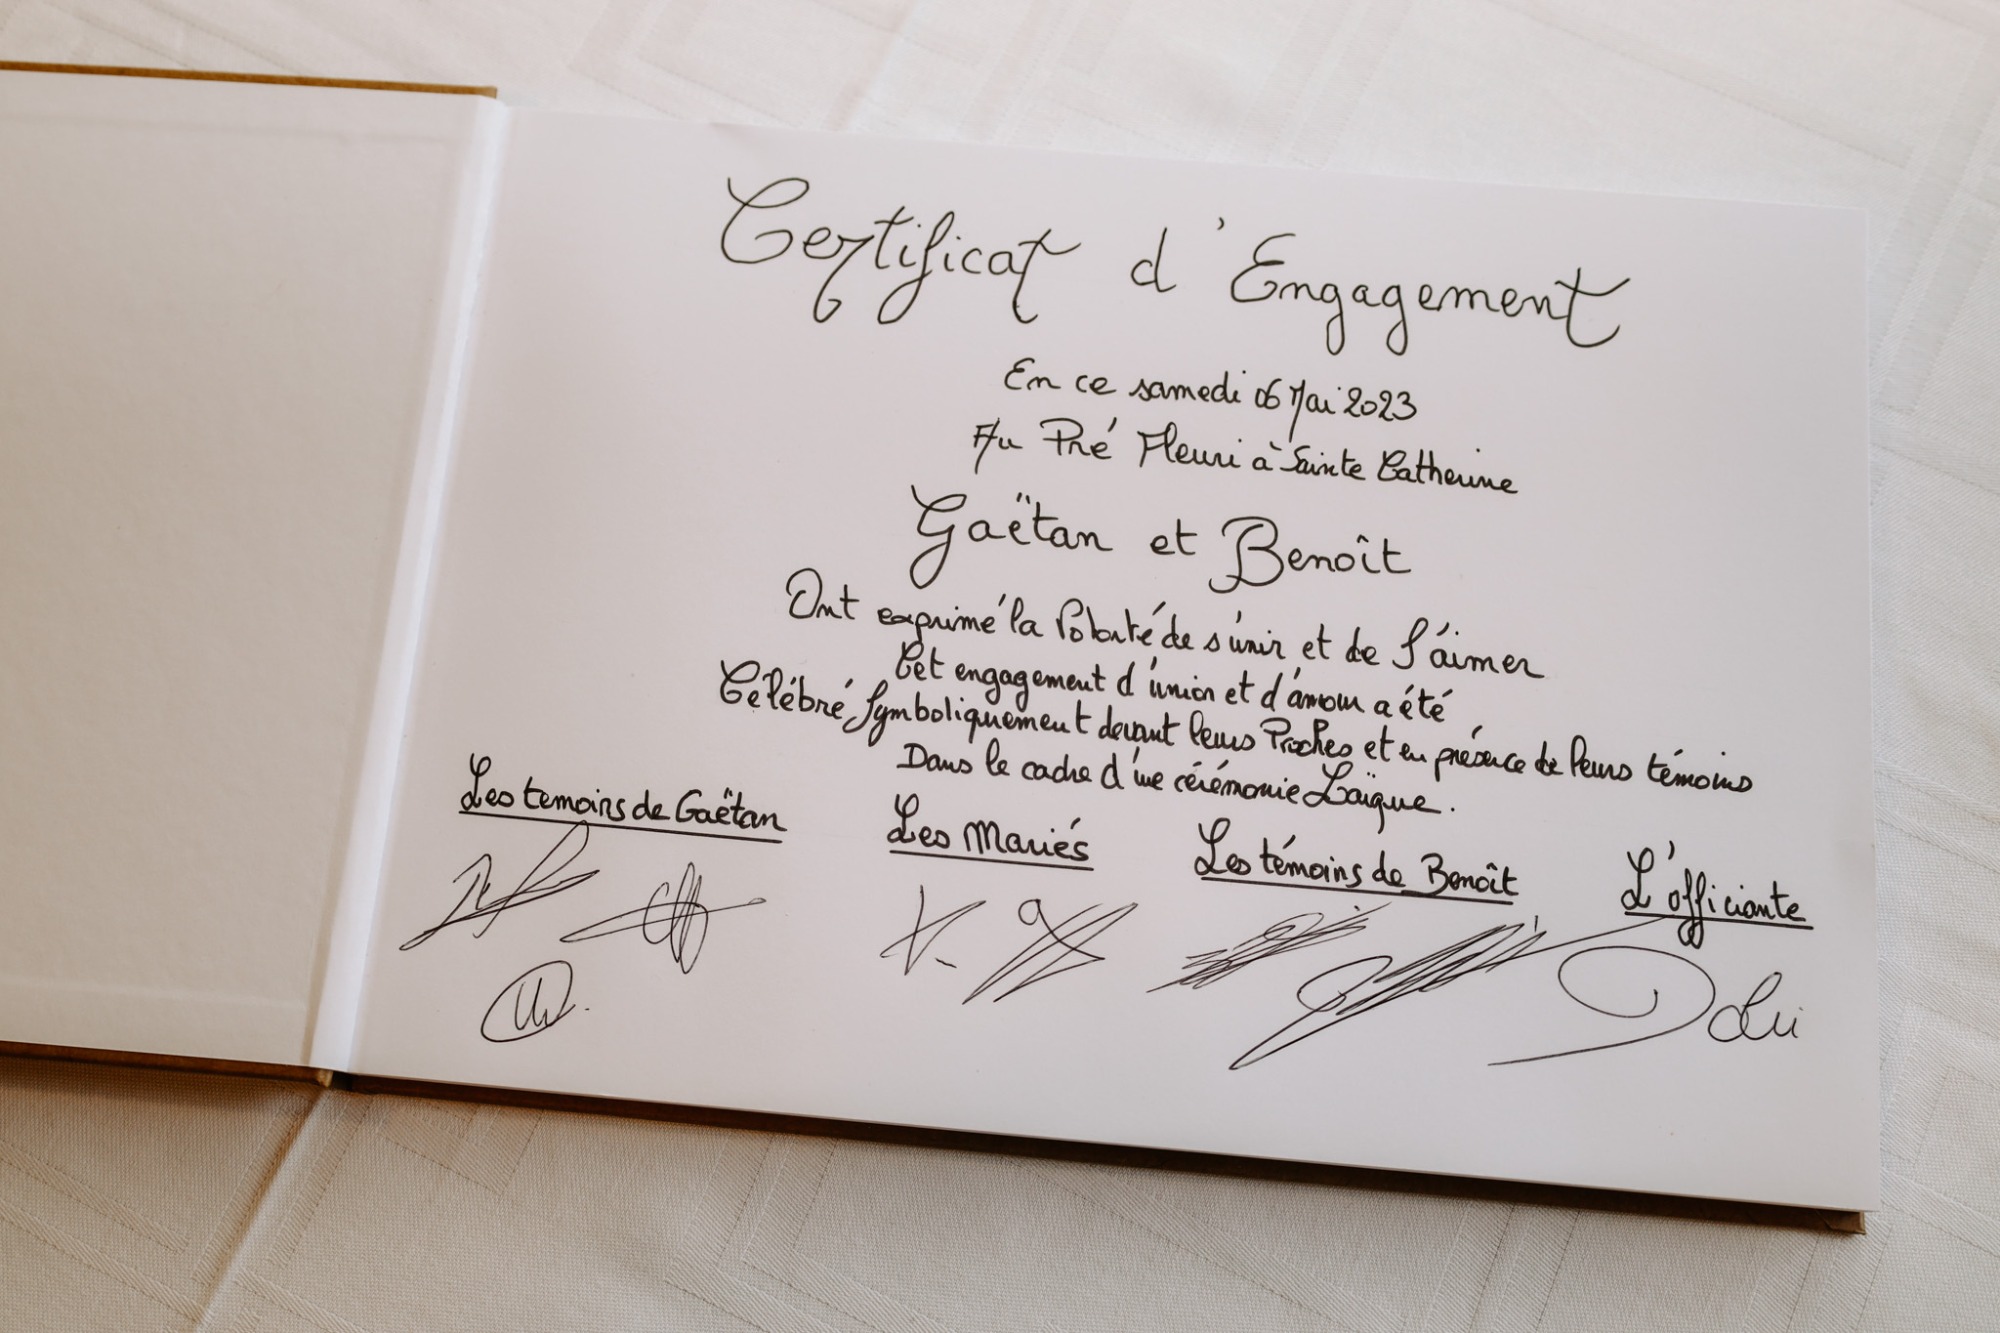 Certificat d'Engagement
En ce samedi 06 Mai 2023
Au Pré Fleuri à Sainte Catherine
Gaëtan et Benoît
Ont exprimé la Volonté de s'unir et de S'aimer
Cet engagement d'union et d'amour a été
Célébré Symboliquement devant leurs Proches et en présence de leurs témoins
Dans le cadre d'une cérémonie Laïque.
Les temoins de Gaëtan
Les Mariés
Les témoins de Benoît
L'officiante